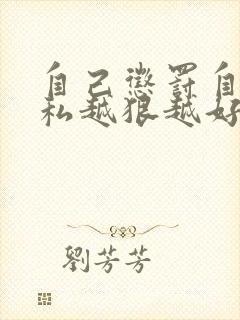 自己惩罚自
私越狠越好
劉芳芳